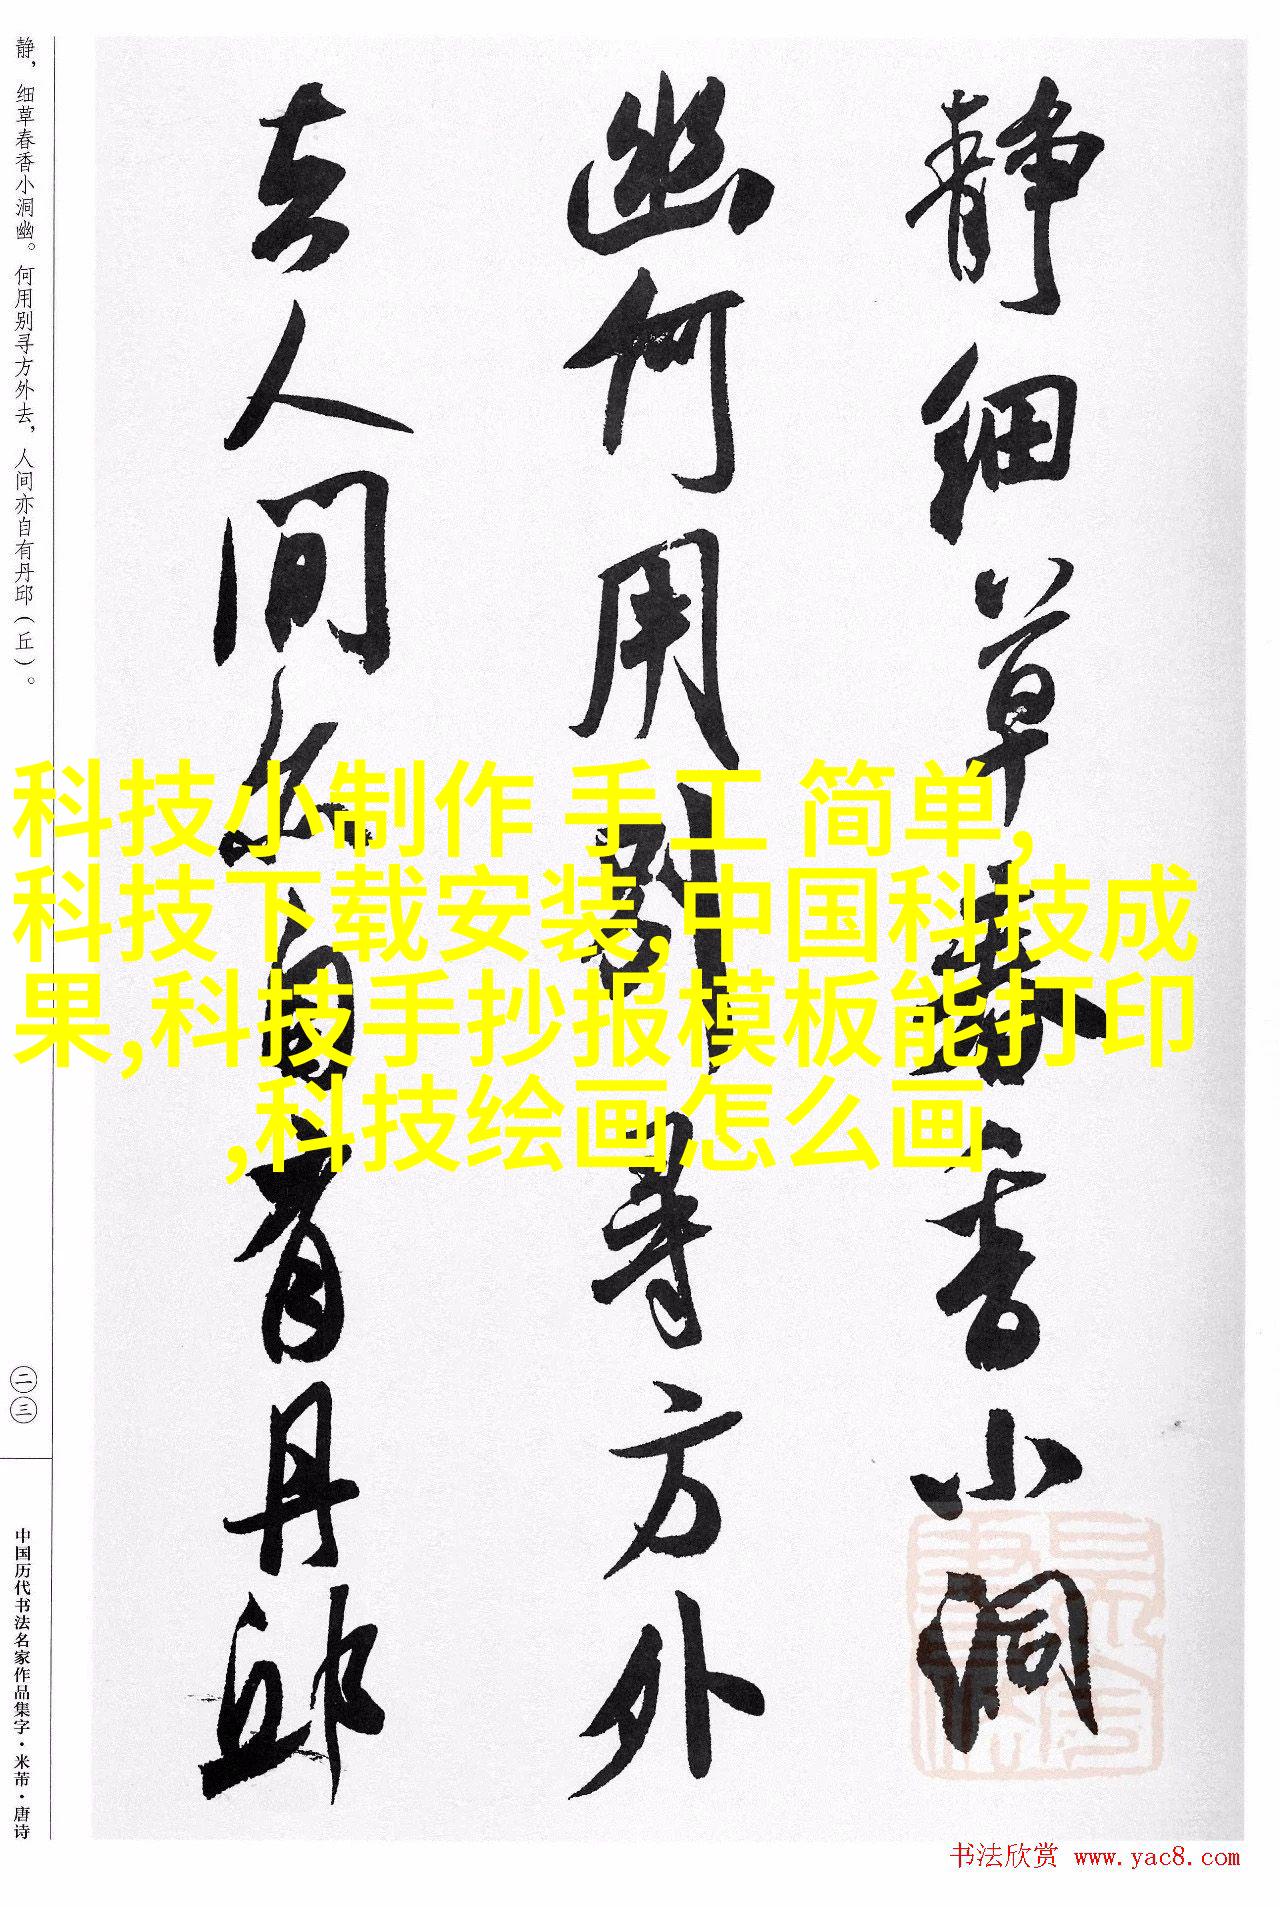 静细草春香小洞
幽何用别寻方外
去人间亦自有丹邱
科技小制作 手工 简单,
科技下载安装,中国科技成
果,科技手抄报模板能打印
,科技绘画怎么画
静，细草春香小洞幽。何用别寻方外去，人间亦自有丹邱（丘）。
二三
中国历代书法名家作品集字·米芾·唐诗
书法欣赏 www.yac8.com